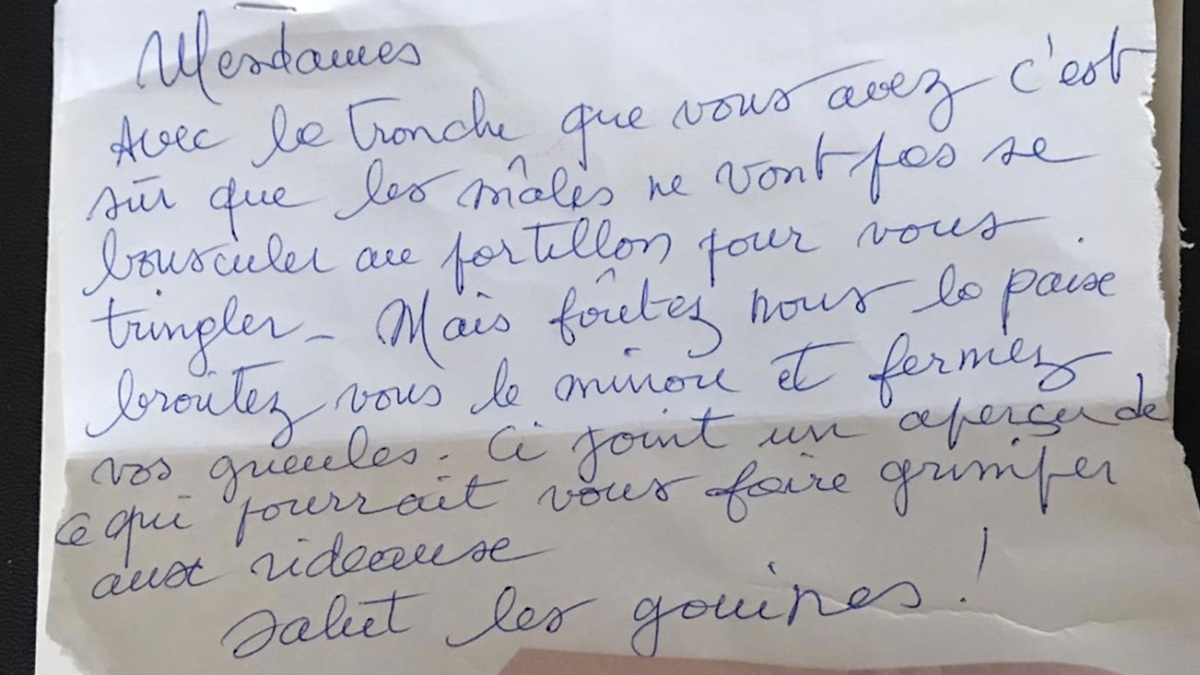 Mesdames
Avec la tronche que vous avez c'est
sûr que les mâles ne vont pas se
bousculer au portillon pour vous
tringler - Mais foûtez nous la paix
broutez vous le minou et fermez
vos gueules. Ci joint un aperçu de
ce qui pourrait vous faire grimper
aux rideaux
Salut les gouines !